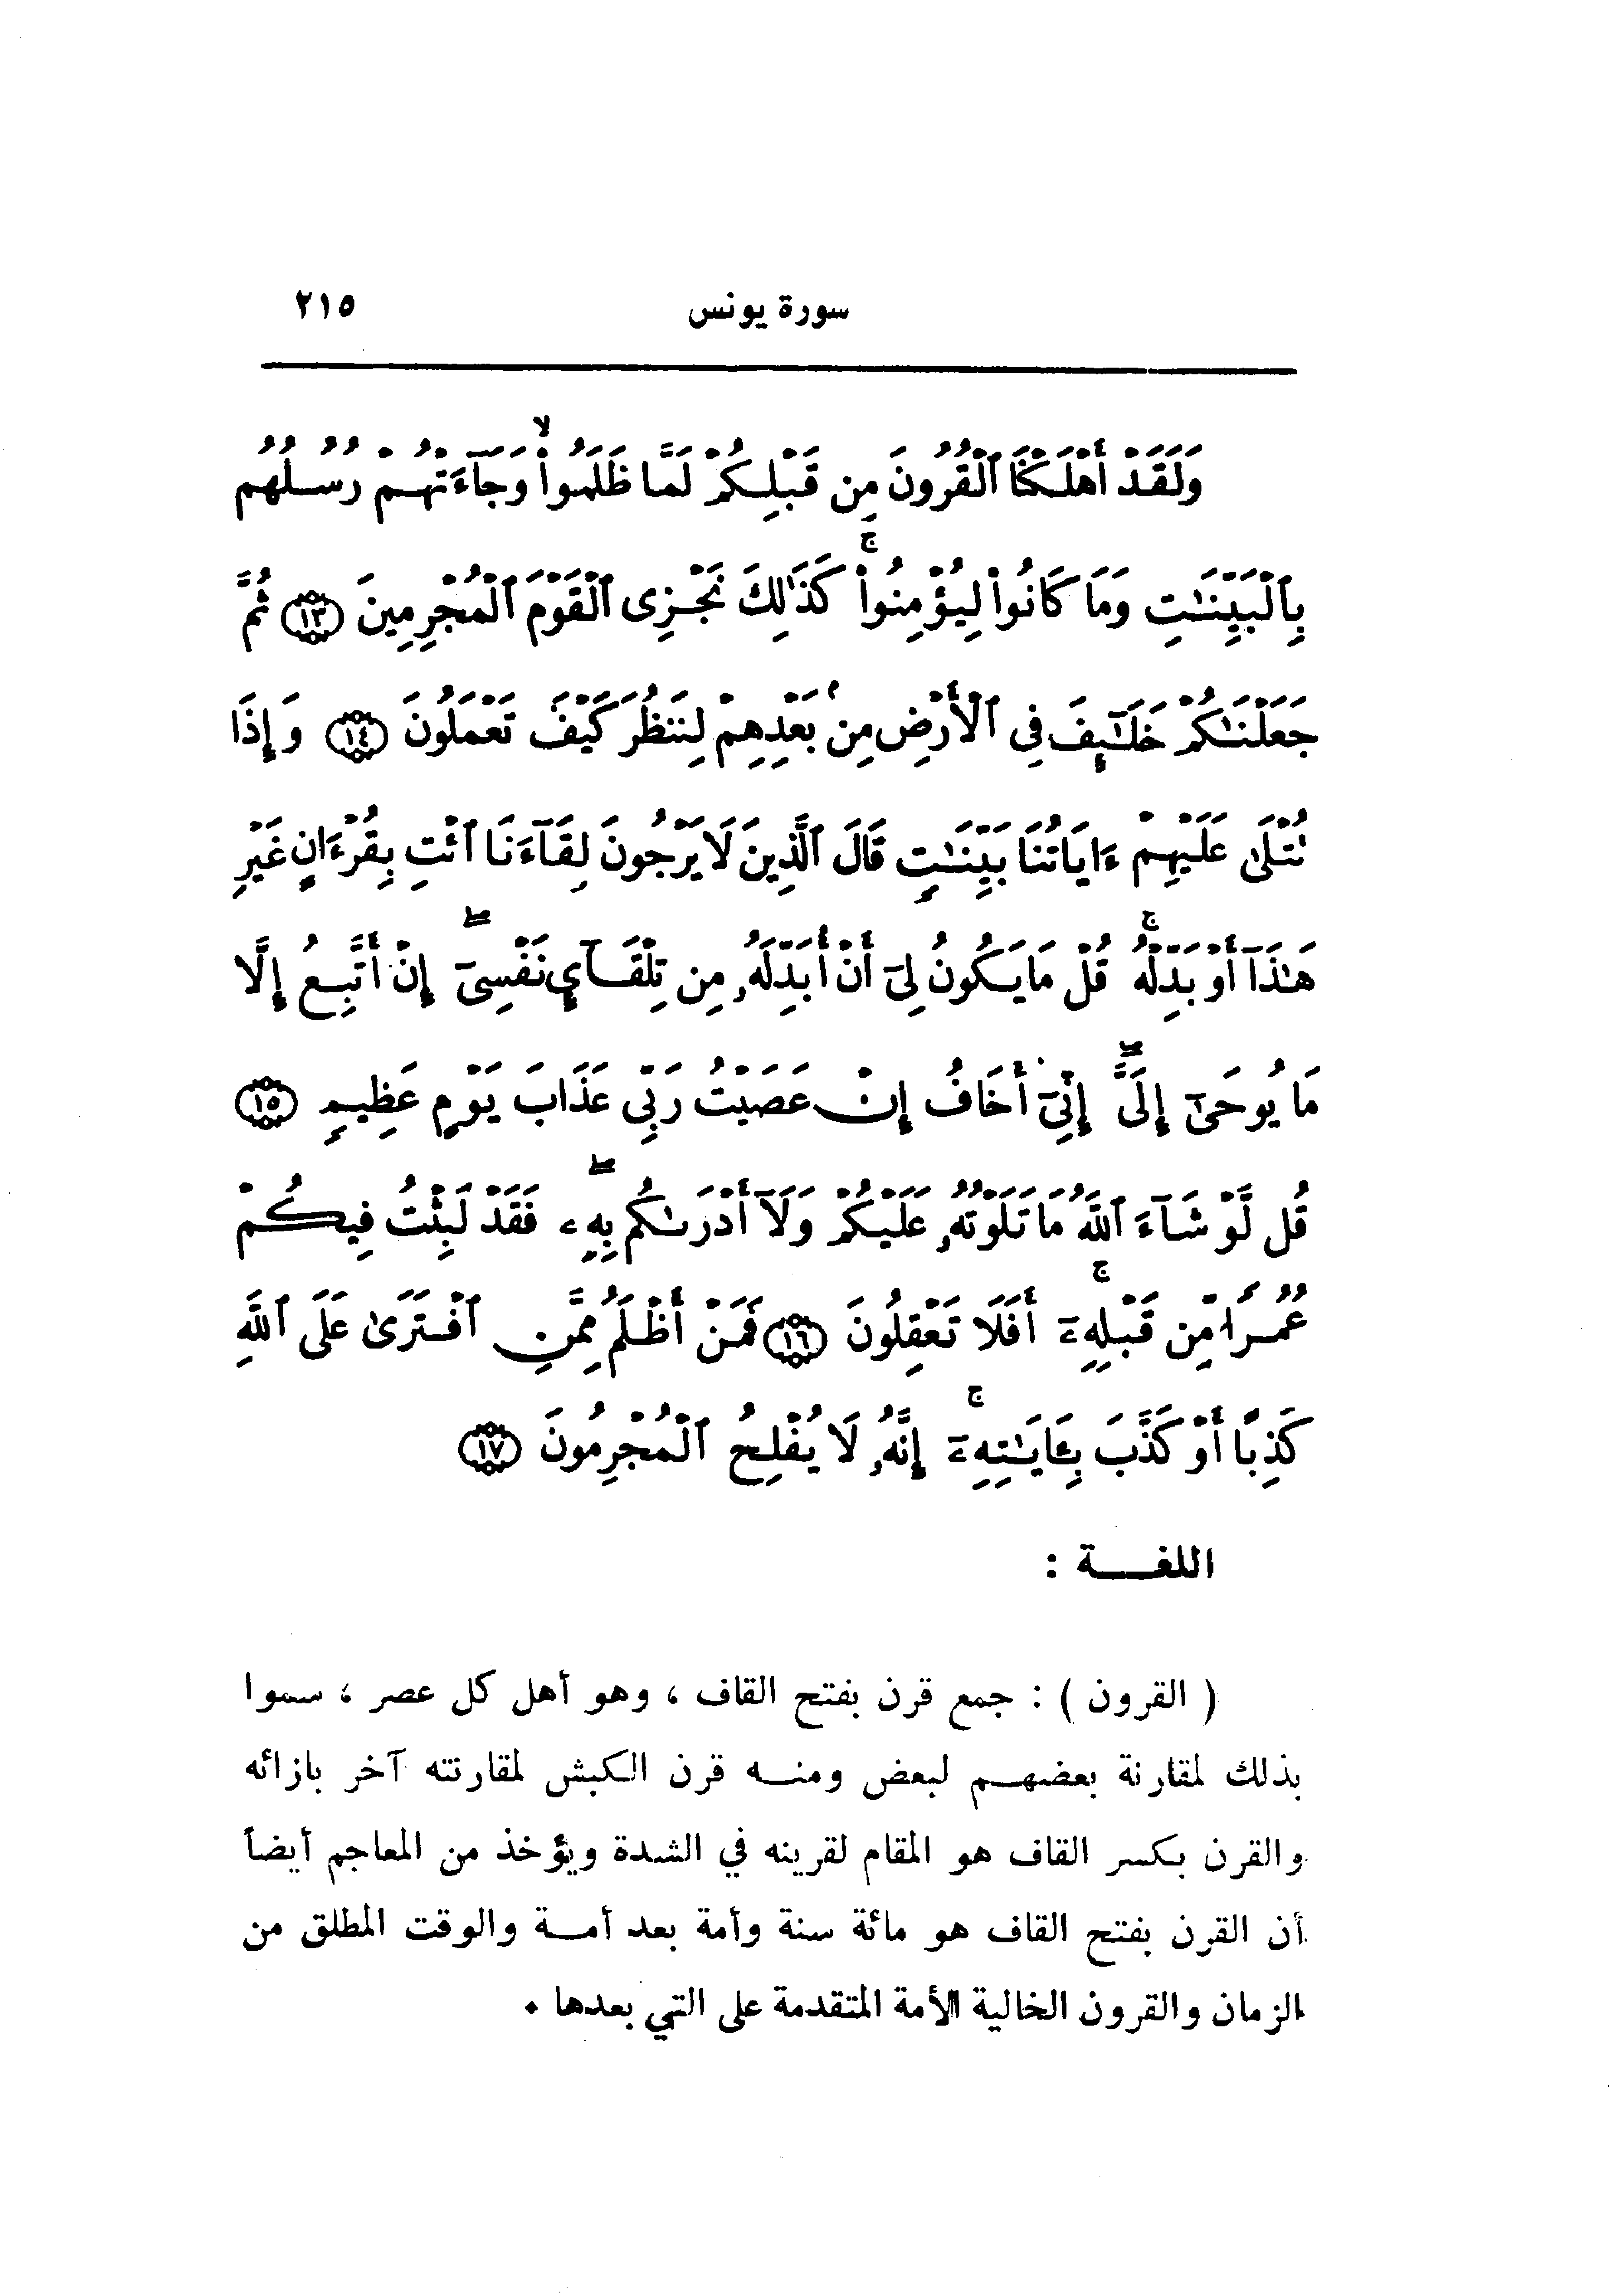 سورة يونس ٢١٥
وَلَقَدْ أَهْلَكْنَا ٱلْقُرُونَ مِن قَبْلِكُمْ لَمَّا ظَلَمُوا۟ ۙ وَجَآءَتْهُمْ رُسُلُهُم
بِٱلْبَيِّنَٰتِ وَمَا كَانُوا۟ لِيُؤْمِنُوا۟ ۚ كَذَٰلِكَ نَجْزِى ٱلْقَوْمَ ٱلْمُجْرِمِينَ ﴿١٣﴾ ثُمَّ
جَعَلْنَٰكُمْ خَلَٰٓئِفَ فِى ٱلْأَرْضِ مِنۢ بَعْدِهِمْ لِنَنظُرَ كَيْفَ تَعْمَلُونَ ﴿١٤﴾ وَإِذَا
تُتْلَىٰ عَلَيْهِمْ ءَايَاتُنَا بَيِّنَٰتٍ قَالَ ٱلَّذِينَ لَا يَرْجُونَ لِقَآءَنَا ٱئْتِ بِقُرْءَانٍ غَيْرِ
هَٰذَآ أَوْ بَدِّلْهُ ۚ قُلْ مَا يَكُونُ لِىٓ أَنْ أُبَدِّلَهُۥ مِن تِلْقَآئِ نَفْسِىٓ ۖ إِنْ أَتَّبِعُ إِلَّا
مَا يُوحَىٰٓ إِلَىَّ ۖ إِنِّىٓ أَخَافُ إِنْ عَصَيْتُ رَبِّى عَذَابَ يَوْمٍ عَظِيمٍ ﴿١٥﴾
قُل لَّوْ شَآءَ ٱللَّهُ مَا تَلَوْتُهُۥ عَلَيْكُمْ وَلَآ أَدْرَىٰكُم بِهِۦ ۖ فَقَدْ لَبِثْتُ فِيكُمْ
عُمُرًا مِّن قَبْلِهِۦٓ ۚ أَفَلَا تَعْقِلُونَ ﴿١٦﴾ فَمَنْ أَظْلَمُ مِمَّنِ ٱفْتَرَىٰ عَلَى ٱللَّهِ
كَذِبًا أَوْ كَذَّبَ بِـَٔايَٰتِهِۦٓ ۚ إِنَّهُۥ لَا يُفْلِحُ ٱلْمُجْرِمُونَ ﴿١٧﴾
اللغـــة :
( القرون ) : جمع قرن بفتح القاف ، وهو أهل كل عصر ، سموا
بذلك لمقارنة بعضهـم لبعض ومنـه قرن الكبش لمقارنته آخر بازائه
والقرن بكسر القاف هو المقام لقرينه في الشدة ويؤخذ من المعاجم أيضاً
أن القرن بفتح القاف هو مائة سنة وأمة بعد أمـة والوقت المطلق من
الزمان والقرون الخالية الأمة المتقدمة على التي بعدها ٠